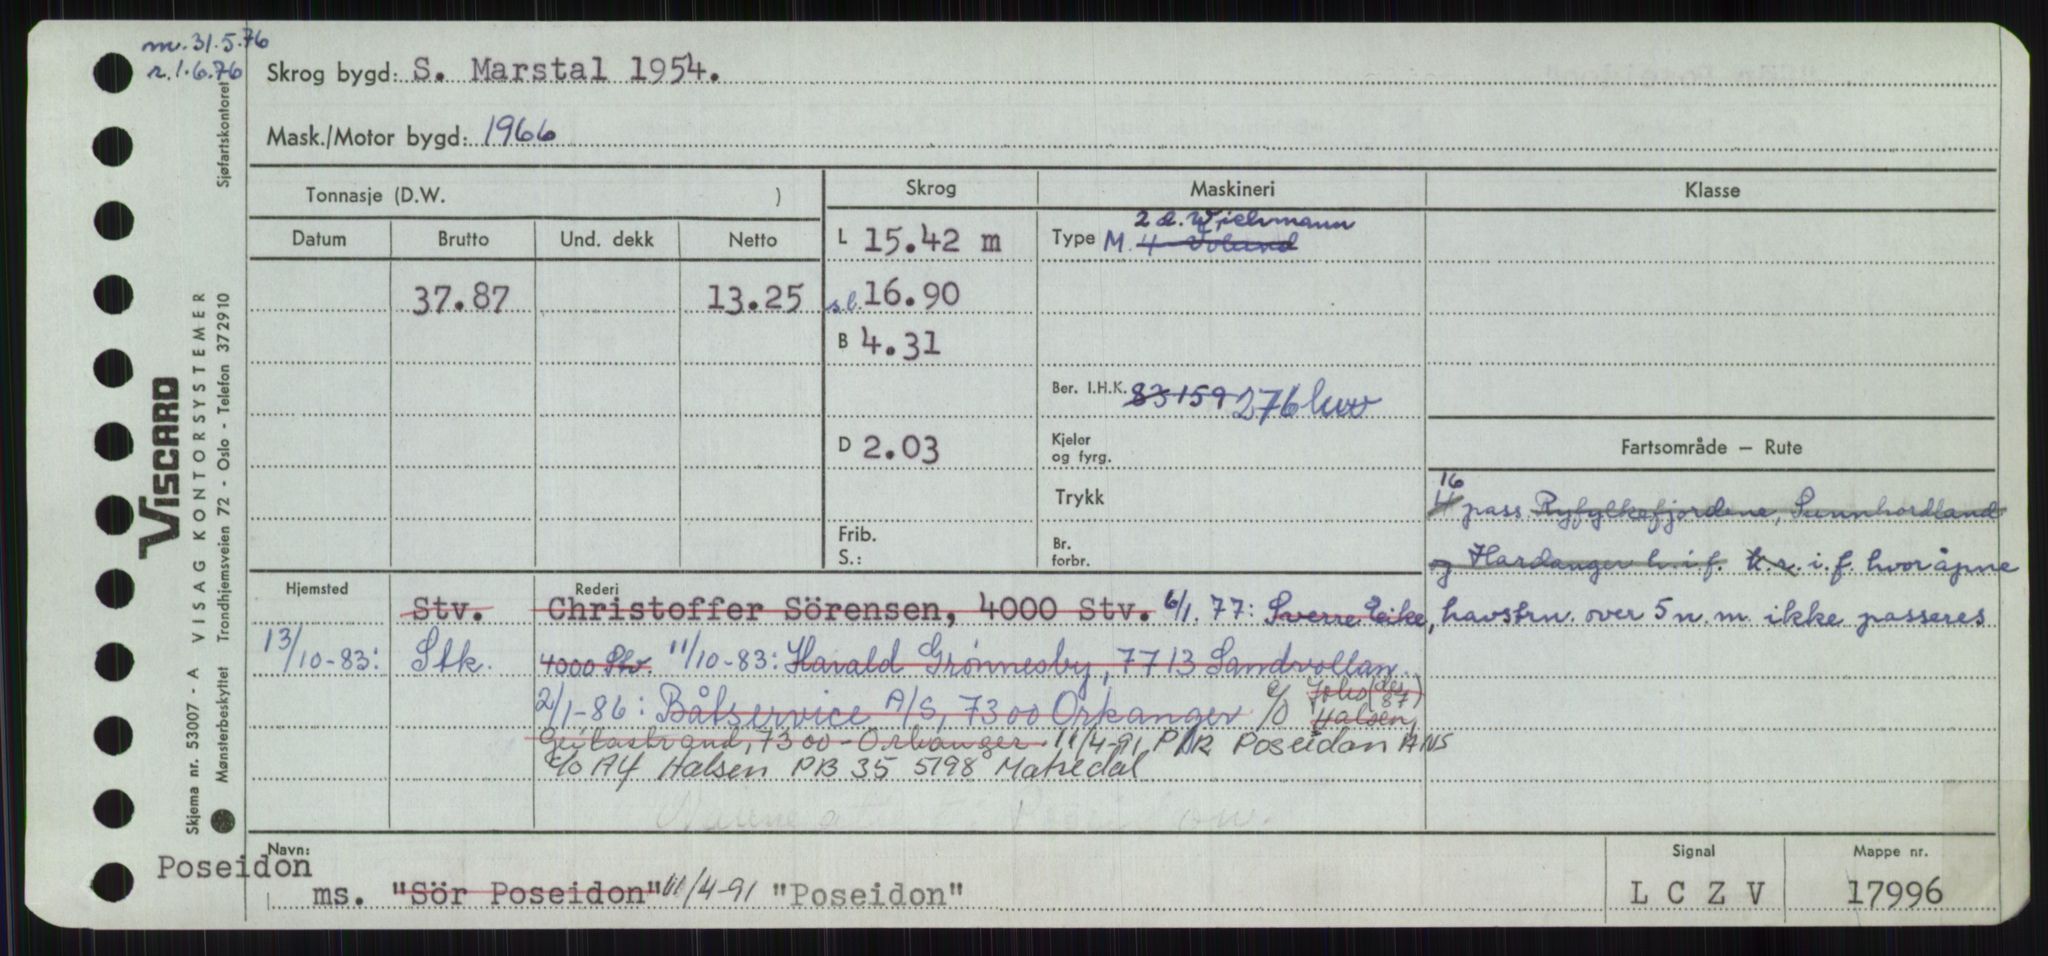 m. 31.5.76
r. 1.6.76
Skrog bygd: S. Marstal 1954.
Mask./Motor bygd: 1966
Tonnasje (D.W. )
Skrog
Maskineri
Klasse
Datum Brutto Und. dekk Netto
L 15.42 m
Type M. 4 Volund
2 d. Wichmann
37.87 13.25
s.l. 16.90
B 4.31
Ber. I.H.K. 83 159 276 kw
D 2.03
Kjeler og fyrg.
Trykk
Frib. S.:
Br. forbr.
Fartsområde — Rute
16
pass. Ryfylkefjordene, Sunnhordland
og Hardanger h.i.f. k.r. i.f. hvor åpne
havstrn. over 5 n.m. ikke passeres
Hjemsted Rederi
Stv. Christoffer Sörensen, 4000 Stv. 6/1. 77: Sverre Eike,
13/10-83: Stk. 4000 Stv. 11/10-83: Harald Grønnesby, 7713 Sandvollan.
2/1-86: Båtservice A/S, 7300 Orkanger c/o Halsen,
(des 87)
Geitastrand, 7300 - Orkanger. 11/4-91 P/R Poseidon ANS
c/o Alf Halsen PB 35 5198 Matredal
Navn:
Poseidon
ms. "Sör Poseidon" 11/4-91 "Poseidon"
Signal
L C Z V
Mappe nr.
17996
Sjøfartskontoret
VISCARD
Skjema nr. 53007 - A VISAG KONTORSYSTEMER
Mønsterbeskyttet Trondhjemsveien 72 - Oslo - Telefon 372910